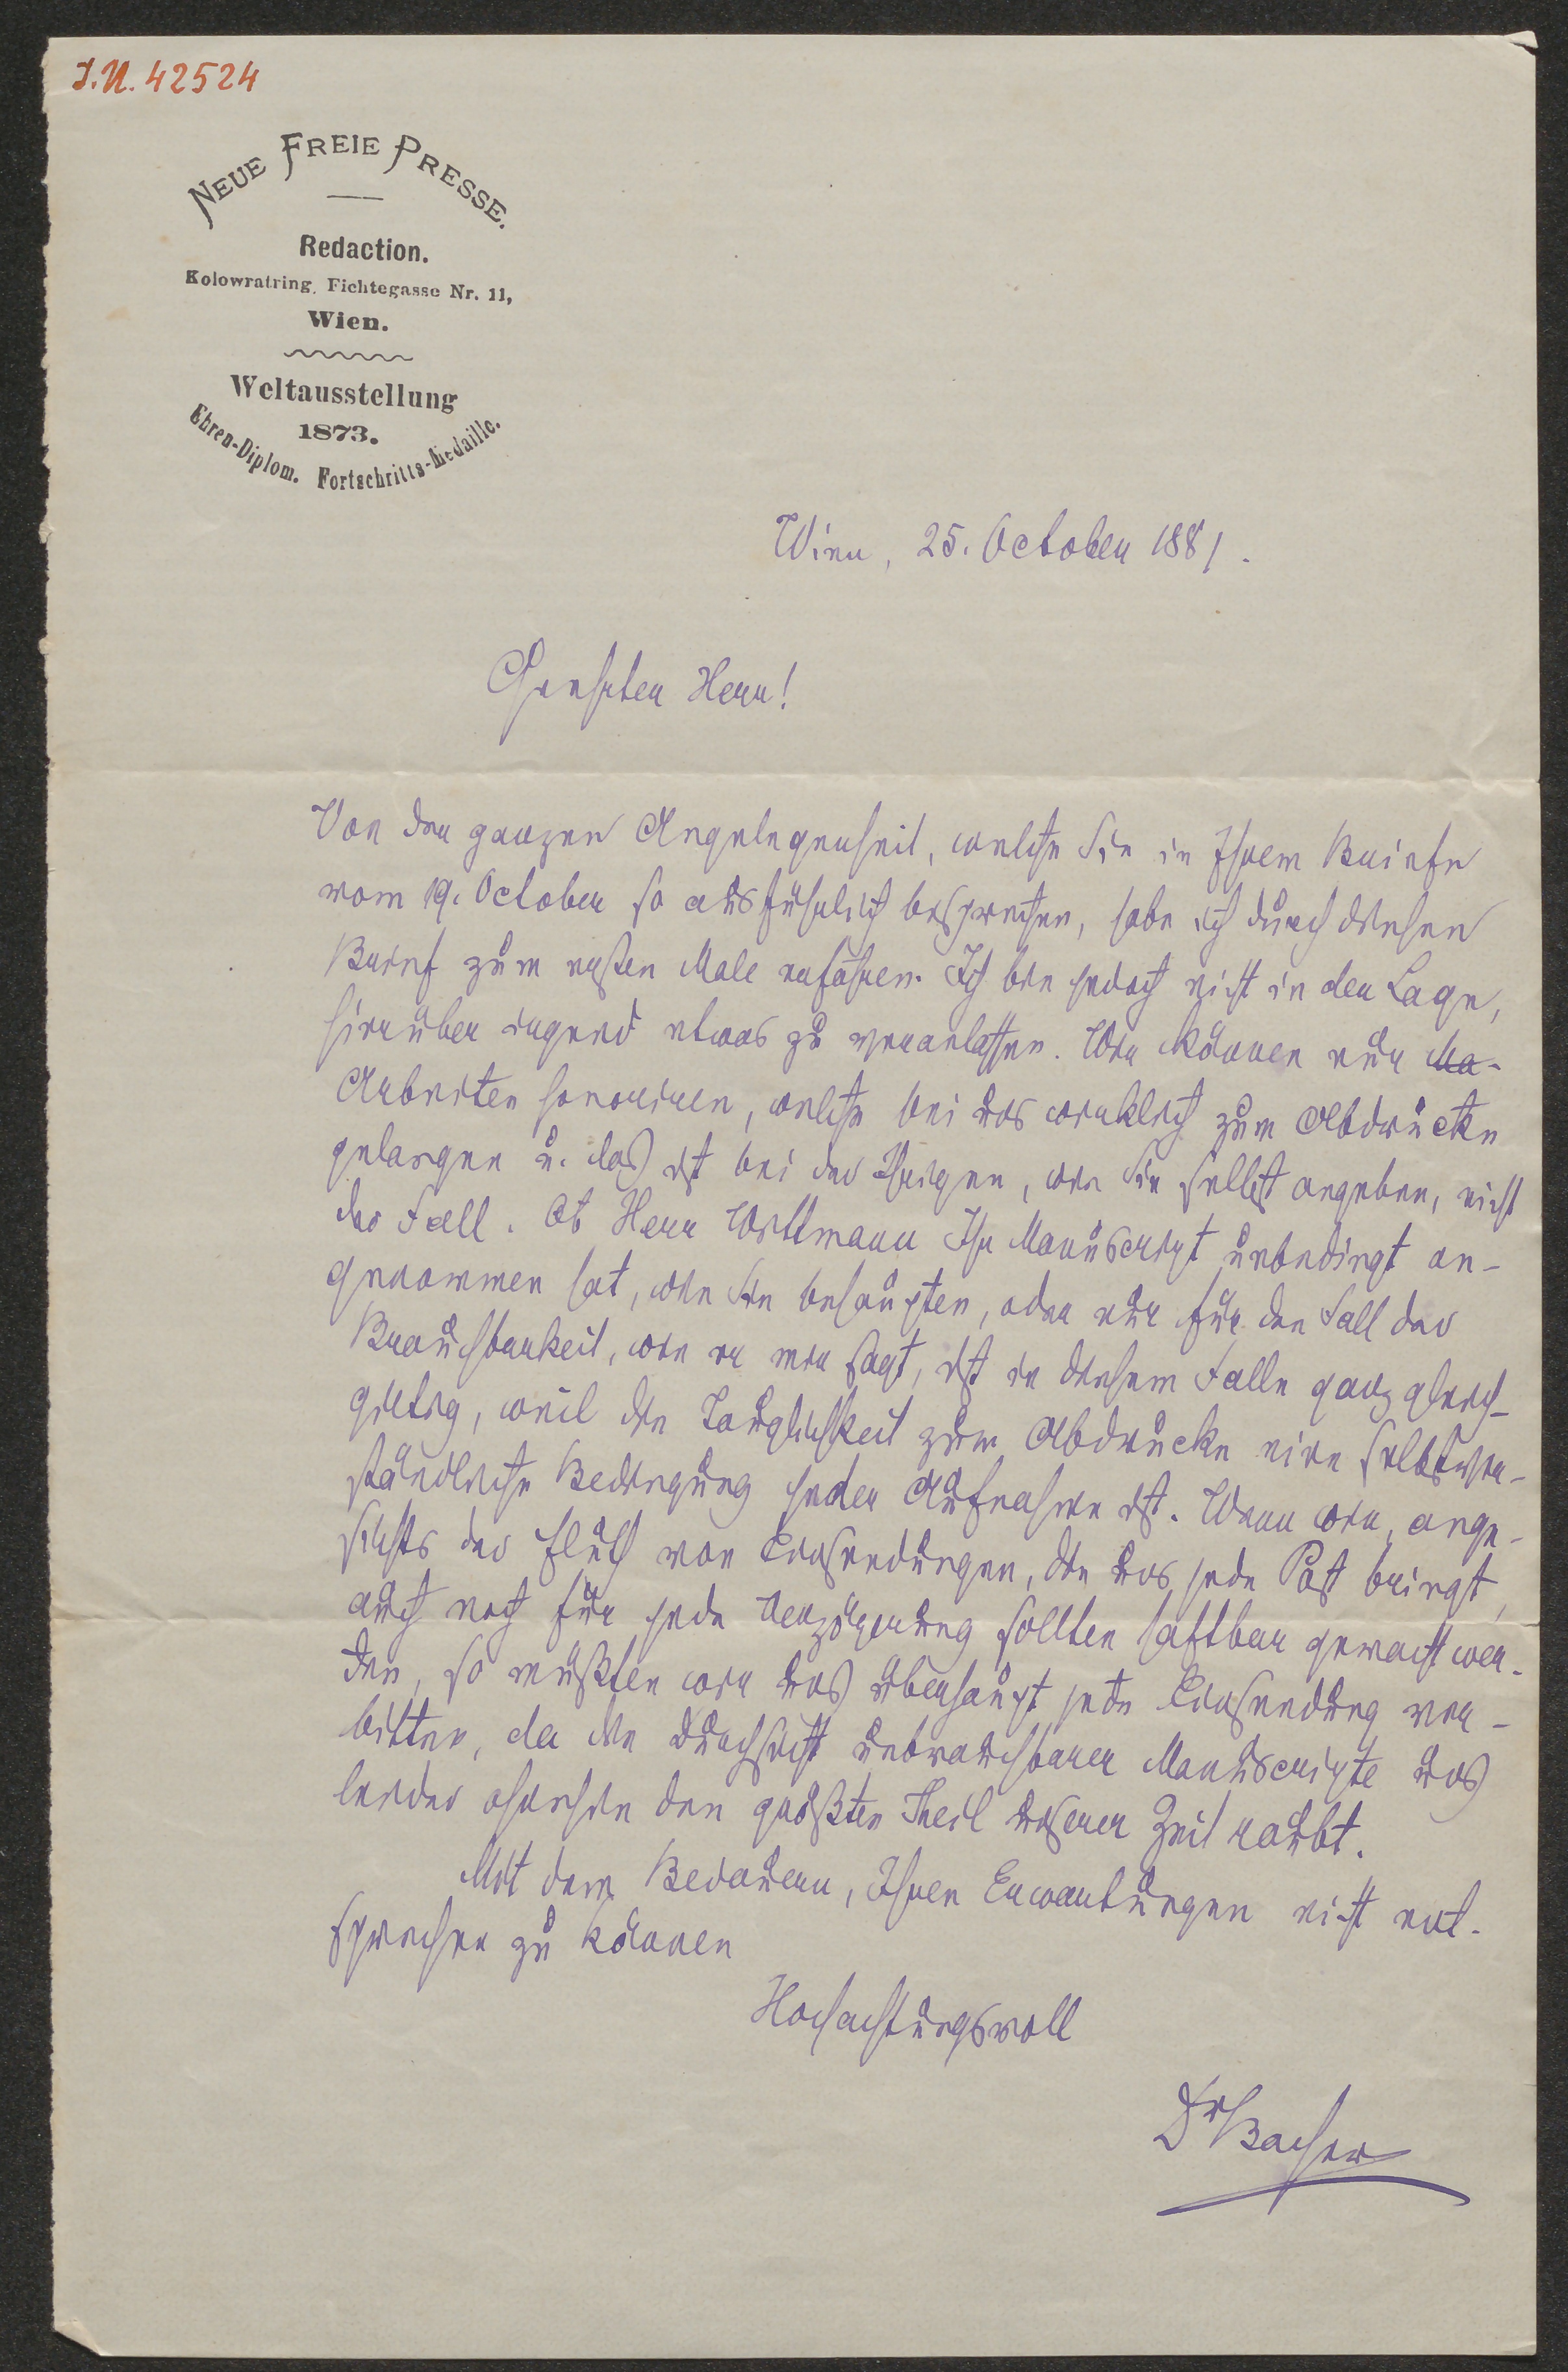 I.N. 42524
NEUE FREIE PRESSE.
Redaction.
Kolowratring, Fichtegasse Nr. 11,
Wien.
Weltausstellung
1873.
Ehren-Diplom. Fortschritts-Medaille.
Wien, 25. October 1881.
Geehrter Herr!
Von der ganzen Angelegenheit, welche Sie in Ihrem Briefe
vom 19. October so ausführlich besprechen, habe ich durch diesen
Brief zum ersten Male erfahren. Ich bin jedoch nicht in der Lage,
hierüber irgend etwas zu veranlassen. Wir können nur Ma-
Arbeiten honoriren, welche bei uns wirklich zum Abdrucke
gelangen u. das ist bei der Ihrigen, wie Sie selbst angeben, nicht
der Fall. Ob Herr Wittmann Ihr Manuscript unbedingt an-
genommen hat, wie Sie behaupten, oder nur für den Fall der
Brauchbarkeit, wie er mir sagt, ist in diesem Falle ganz gleich-
giltig, weil die Tauglichkeit zum Abdrucke eine selbstver-
ständliche Bedingung jeder Aufnahme ist. Wenn wir, ange-
sichts der Fluth von Einsendungen, die uns jede Post bringt,
auch noch für jede Verzögerung sollten haftbar gemacht wer-
den, so müßten wir uns überhaupt jede Einsendung ver-
bitten, da die Durchsicht unbrauchbarer Manuscripte uns
leider ohnehin den größten Theil unserer Zeit raubt.
Mit dem Bedauern, Ihren Erwartungen nicht ent-
sprechen zu können
Hochachtungsvoll
Dr Bacher